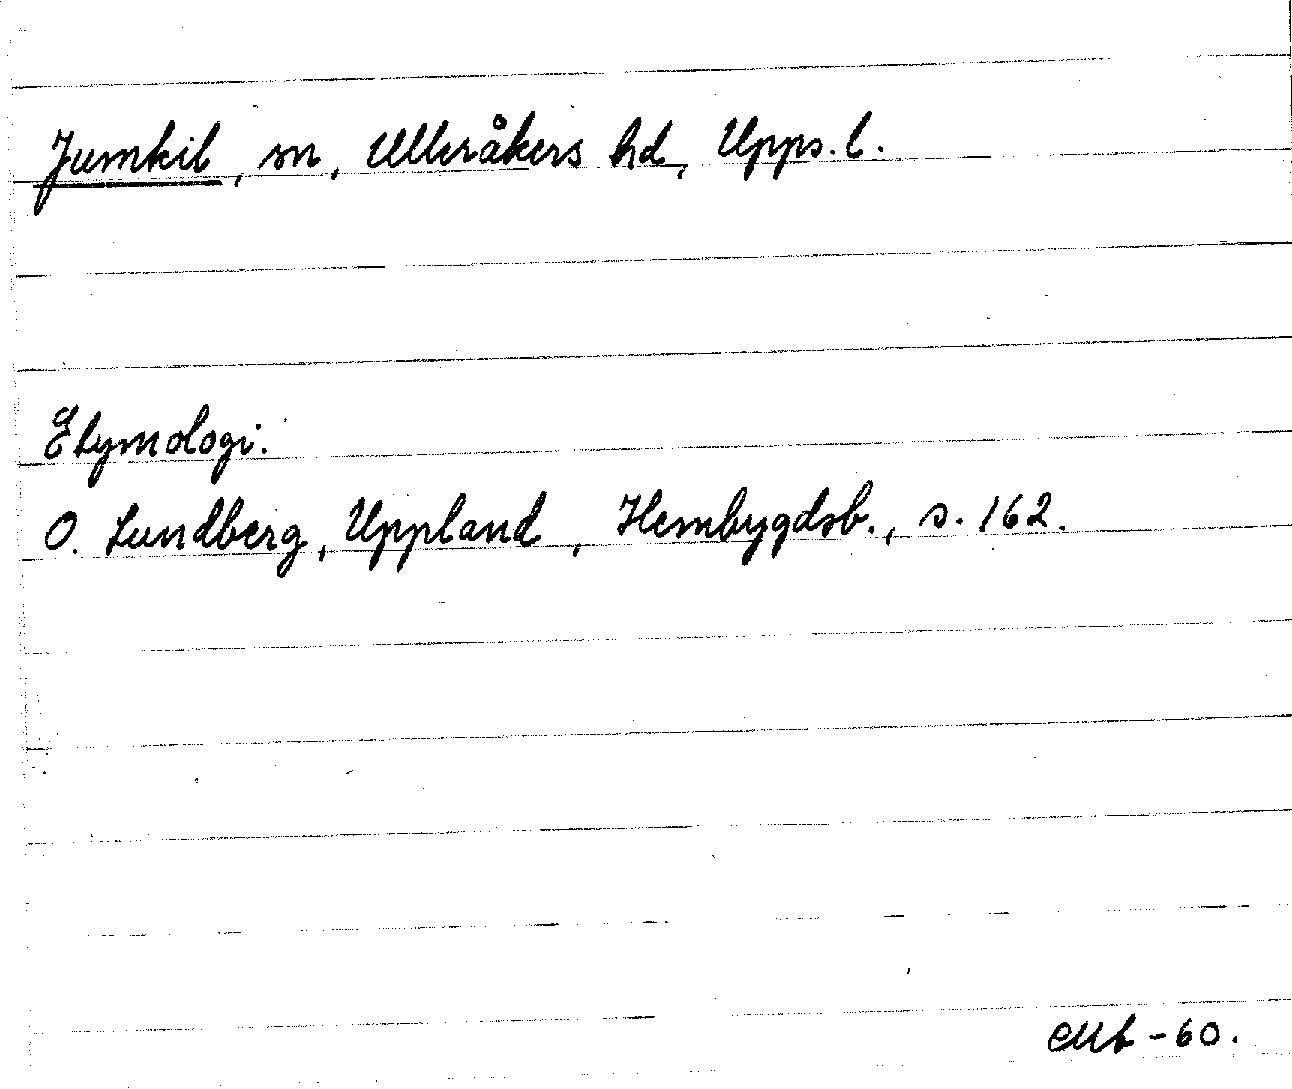 Jumkil, sn, Ulleråkers hd, Upps. l.
Etymologi.
O. Lundberg, Uppland, Hembygdsb., s. 162.
-60.